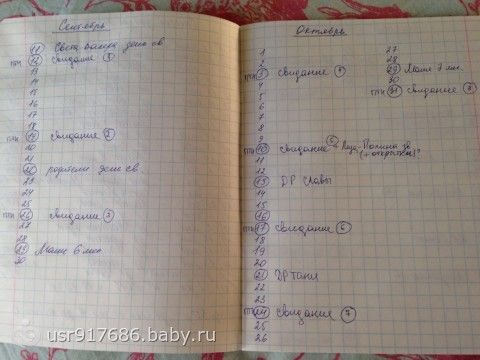 Сентябрь
11 Света, Валера день св
птн 12 Свидание 1
13
14
15
16
17
18
птн 19 Свидание 2
20
21
22 родители день св.
23
24
25
птн 26 Свидание 3
27
28
29 Маше 6 мес
30
Октябрь
1
2
птн 3 Свидание 4
4
5
6
7
8
9
птн 10 Свидание 5
(+открытки)
11
12
13 ДР Славы
14
15
16
птн 17 Свидание 6
18
19
20
21 ДР Тани
22
23
птн 24 Свидание 7
25
26
27
28
29 Маше 7 мес.
30
птн 31 Свидание 8
usr917686.baby.ru